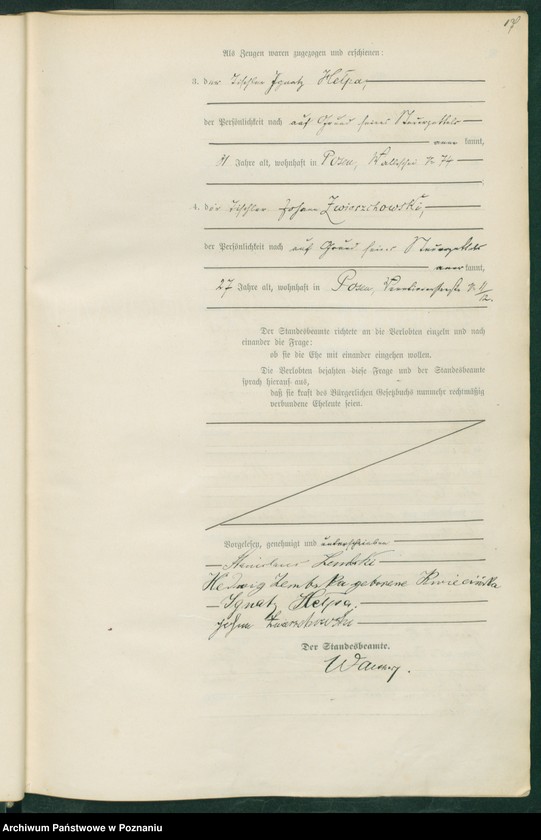 Als Zeugen waren zugezogen und erschienen:
3. der Tischler Ignatz Helpa,
der Persönlichkeit nach auf Grund seines Steuerzettels
anerkannt,
Jahre alt, wohnhaft in Posen, Wallischei № 74
4. der Tischler Johann Zwierzchowski,
der Persönlichkeit nach auf Grund seines Steuerzettels
anerkannt,
27 Jahre alt, wohnhaft in Posen, № 11/12.
Der Standesbeamte richtete an die Verlobten einzeln und nach
einander die Frage:
ob sie die Ehe mit einander eingehen wollen.
Die Verlobten bejahten diese Frage und der Standesbeamte
sprach hierauf aus,
daß sie kraft des Bürgerlichen Gesetzbuchs nunmehr rechtmäßig
verbundene Eheleute seien.
Vorgelesen, genehmigt und unterschrieben
Stanislaus Zembski
Hedwig Zembska geborene Kwiecińska
Ignatz Helpa.
Johann Zwierzchowski
Der Standesbeamte.
Archiwum Państwowe w Poznaniu